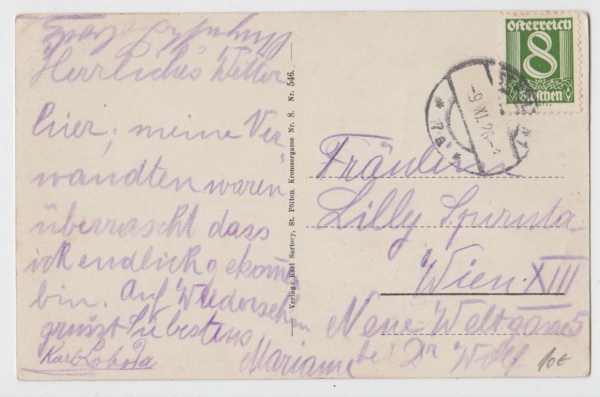 Herrliches Wetter
hier, meine Ver
wandten waren
überrascht dass
ich endlich gekomm
bin. Auf Wiedersehen
grüsst Sie bestens
Marianne
Karl Loboda
Verlag: Karl Sartory, St. Pölten, Kremsergasse Nr. 8. Nr. 546.
Österreich
8
Groschen
-9.XI.26-
* 7a *
Fräulein
Lilly
Wien XIII
Neue Weltgasse 5
bei Dr Wolf
10€